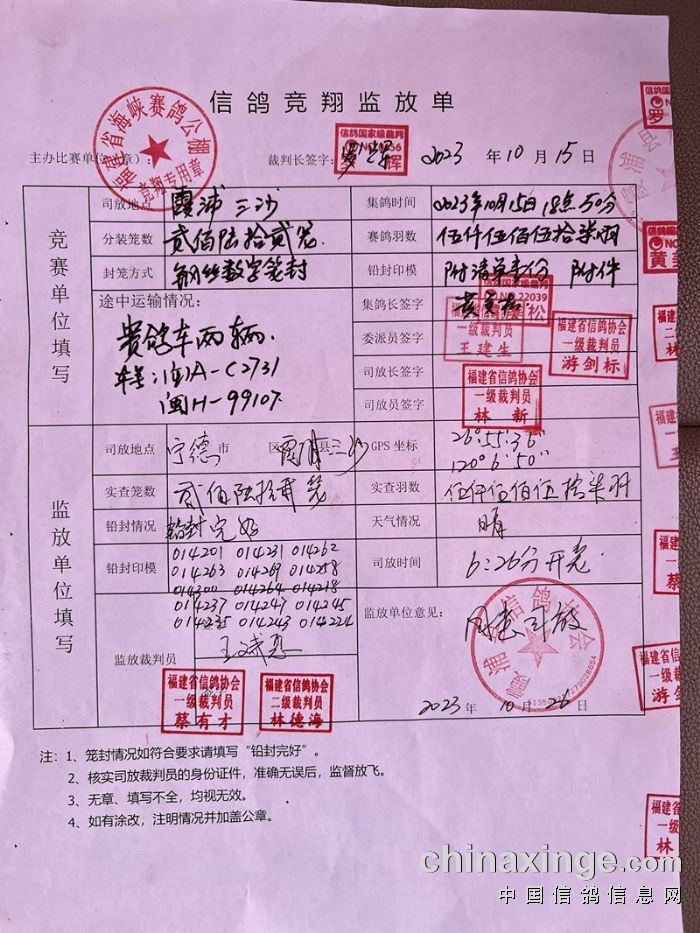 信鸽竞翔监放单
福建省海峡赛鸽公棚
竞翔专用章
主办比赛单位（章）：
裁判长签字：
信鸽国家级裁判
辉
2023 年 10 月 15 日
竞赛单位填写
司放地点 霞浦三沙
集鸽时间 2023年10月15日18点50分
分装笼数 贰佰陆拾贰笼
赛鸽羽数 伍仟伍佰伍拾柒羽
封笼方式 钢丝数字笼封
铅封印模 附清单壹份 附件
途中运输情况：
赛鸽车两辆.
车号：闽A-C2731
闽H-99107
集鸽长签字
22039
松
委派员签字
一级裁判员
王建生
福建省信鸽协会
一级裁判员
游剑标
司放长签字
司放员签字
福建省信鸽协会
一级裁判员
林新
监放单位填写
司放地点 宁德 市 区 霞浦 县 三沙
GPS 坐标 26°55'36"
120°6'50"
实查笼数 贰佰陆拾贰笼
实查羽数 伍仟伍佰伍拾柒羽
铅封情况 铅封完好
天气情况 晴
铅封印模
014201 014231 014262
014263 014269 014258
014300 014264 014218
014237 014247 014245
014235 014243 014224
司放时间 6:26分开笼.
监放裁判员
福建省信鸽协会
一级裁判员
蔡有才
福建省信鸽协会
二级裁判员
林德海
监放单位意见：
同意司放
2023 年 10 月 26 日
注：1、笼封情况如符合要求请填写“铅封完好”。
2、核实司放裁判员的身份证件，准确无误后，监督放飞。
3、无章、填写不全，均视无效。
4、如有涂改，注明情况并加盖公章。
chinaxinge.com
中国信鸽信息网